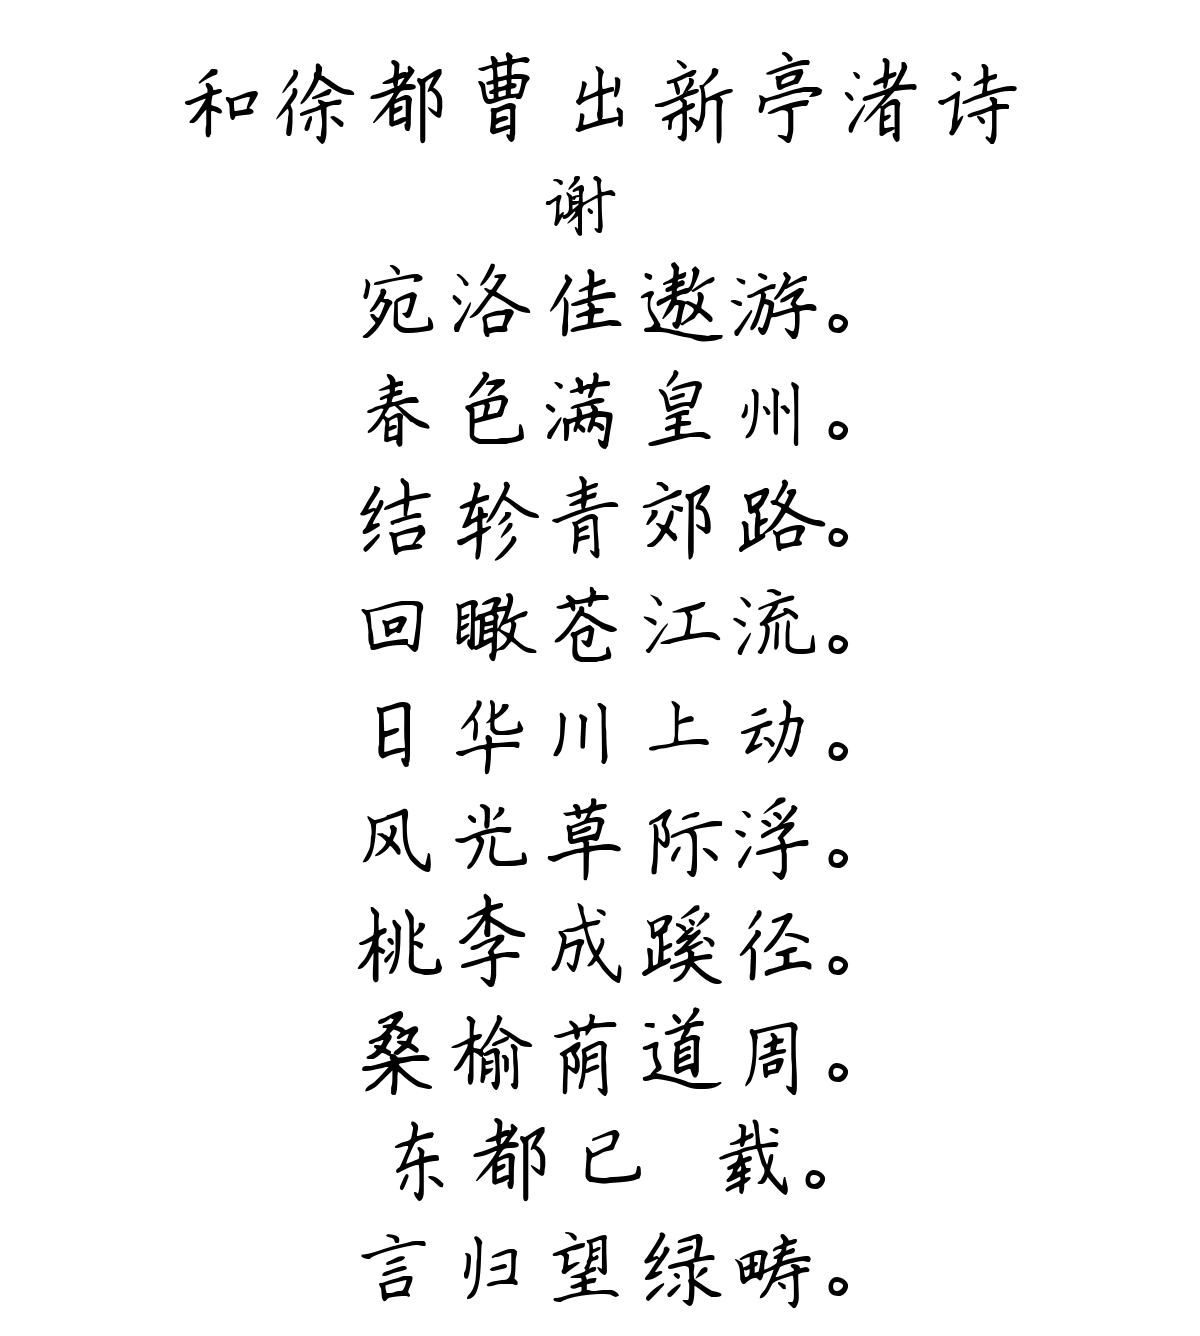 和徐都曹出新亭渚诗
谢
宛洛佳遨游。
春色满皇州。
结轸青郊路。
回瞰苍江流。
日华川上动。
风光草际浮。
桃李成蹊径。
桑榆荫道周。
东都已 载。
言归望绿畴。